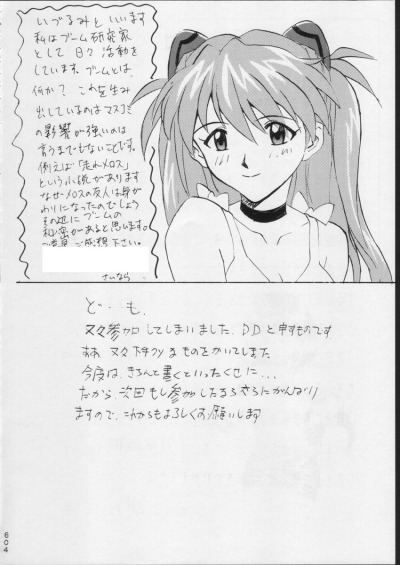 いづるみといいます
私はブーム研究家
として日々活動を
しています。ブームとは、
何か? これを生み
出しているのはマスコミ
の影響が強いのは
言うまでもないことです。
例えば「走れメロス」
という小説があります
なぜメロスの友人は身が
わりになったのでしょう
その辺にブームの
秘密があると思います。
ご感想下さい。
さいなら
ど…も、
又々参加してしまいました、DDと申すものです
又々下手クソなものをかいてしまった
今度は、きちんと書くといったくせに…
だから、次回もし参加したらさらにがんばり
ますので、これからもよろしくお願いします
604